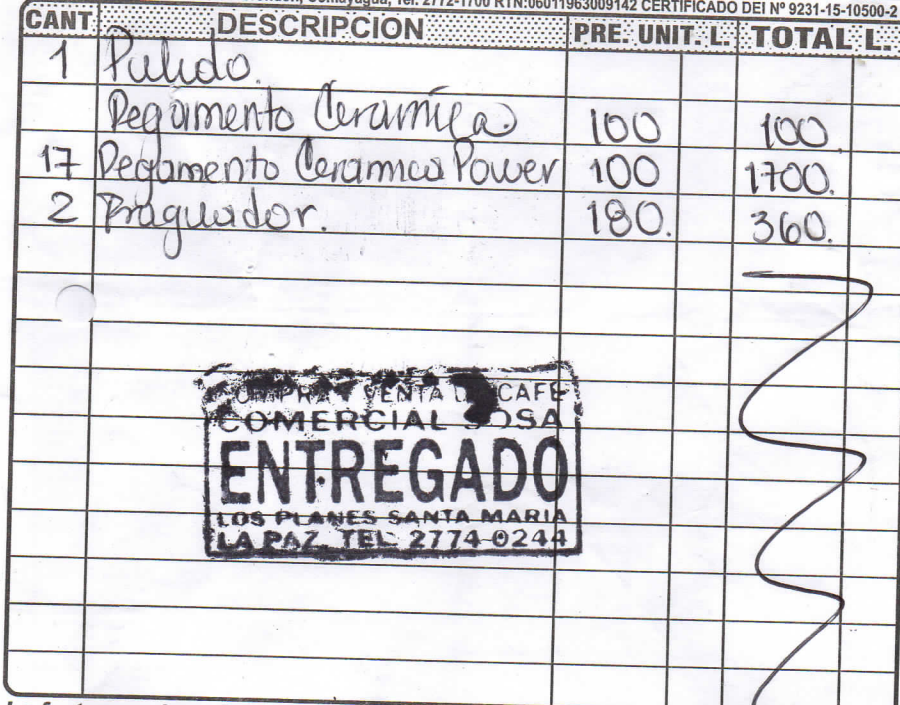 Comayagua, Tel: 2772-1700 RTN:06011963009142 CERTIFICADO DEI Nº 9231-15-10500-2
CANT DESCRIPCION PRE. UNIT. L. TOTAL L.
1 Pulido.
Pegamento Ceramica 100 100.
17 Pegamento Ceramica Power 100 1700.
2 Fraguador. 180. 360.
COMPRA Y VENTA DE CAFE
COMERCIAL SOSA
ENTREGADO
LOS PLANES SANTA MARIA
LA PAZ, TEL: 2774-0244